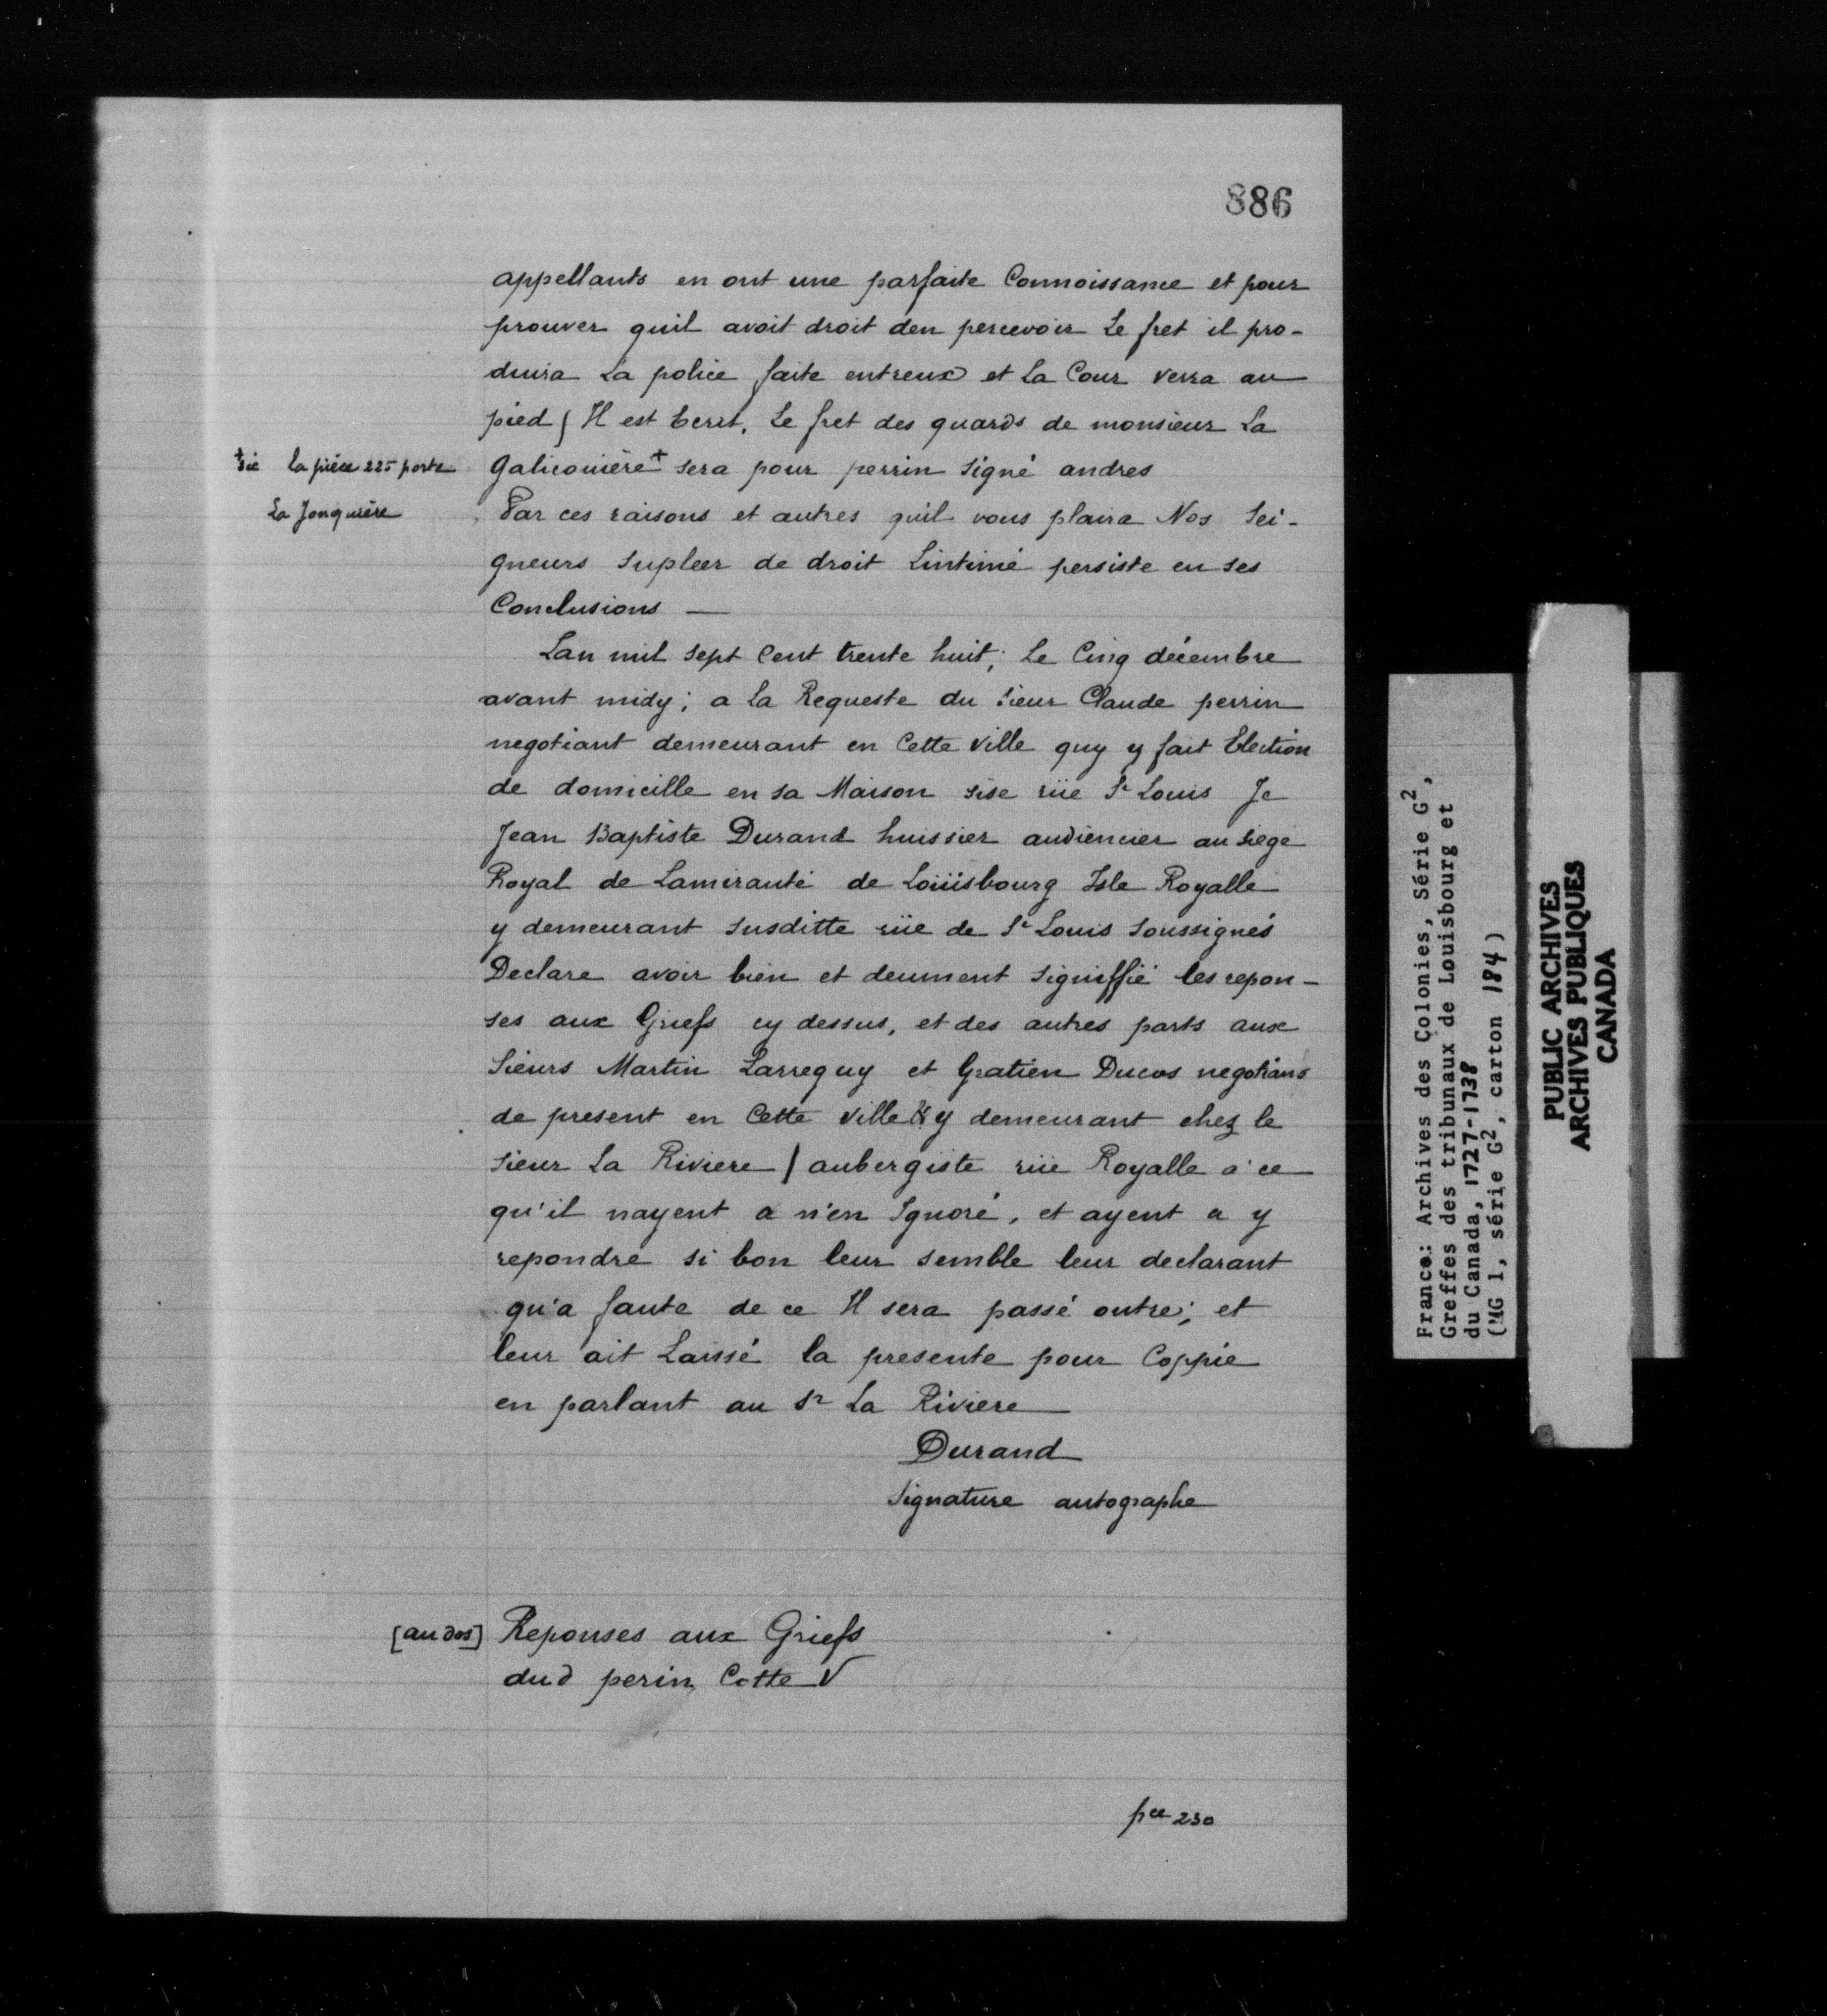 886
appellants en ont une parfaite Connoissance et pour
prouver quil avoit droit den percevoir Le fret il pro-
duira La police faite entreux et La Cour verra au
pied ( Il est Ecrit. Le fret des quards de monsieur La
Galiconière + sera pour perrin signé andres
+ sic la pièce 225 porte
La Jonquière
Par ces raisons et autres quil vous plaira Nos Sei-
gneurs Supleer de droit Lintimé persiste en ses
Conclusions —
Lan mil sept Cent trente huit; Le Cinq décembre
avant midy; a la Requeste du Sieur Claude perrin
negotiant demeurant en Cette Ville quy y fait Election
de domicille en sa Maison sise rüe St Louis Je
Jean Baptiste Durand huissier audiencier au siege
Royal de Lamirauté de Loüisbourg Isle Royalle
y demeurant susditte rüe de St Louis soussignés
Declare avoir bien et deument signiffié les repon-
ses aux Griefs cy dessus, et des autres parts aux
Sieurs Martin Larreguy et Gratien Ducos negotians
de present en Cette Ville y demeurant chez le
sieur La Riviere / aubergiste rüe Royalle a ce
qu'il nayent a n'en Ignoré, et ayent a y
repondre si bon leur semble leur declarant
qu'a faute de ce Il sera passé outre; et
leur ait Laissé la presente pour Coppie
en parlant au Sr La Riviere
Durand
Signature autographe
[au dos] Reponses aux Griefs
dud perin Cotte V
pce 230
France: Archives des Colonies, Série G2,
Greffes des tribunaux de Louisbourg et
du Canada, 1727-1738
(MG 1, série G2, carton 184)
PUBLIC ARCHIVES
ARCHIVES PUBLIQUES
CANADA